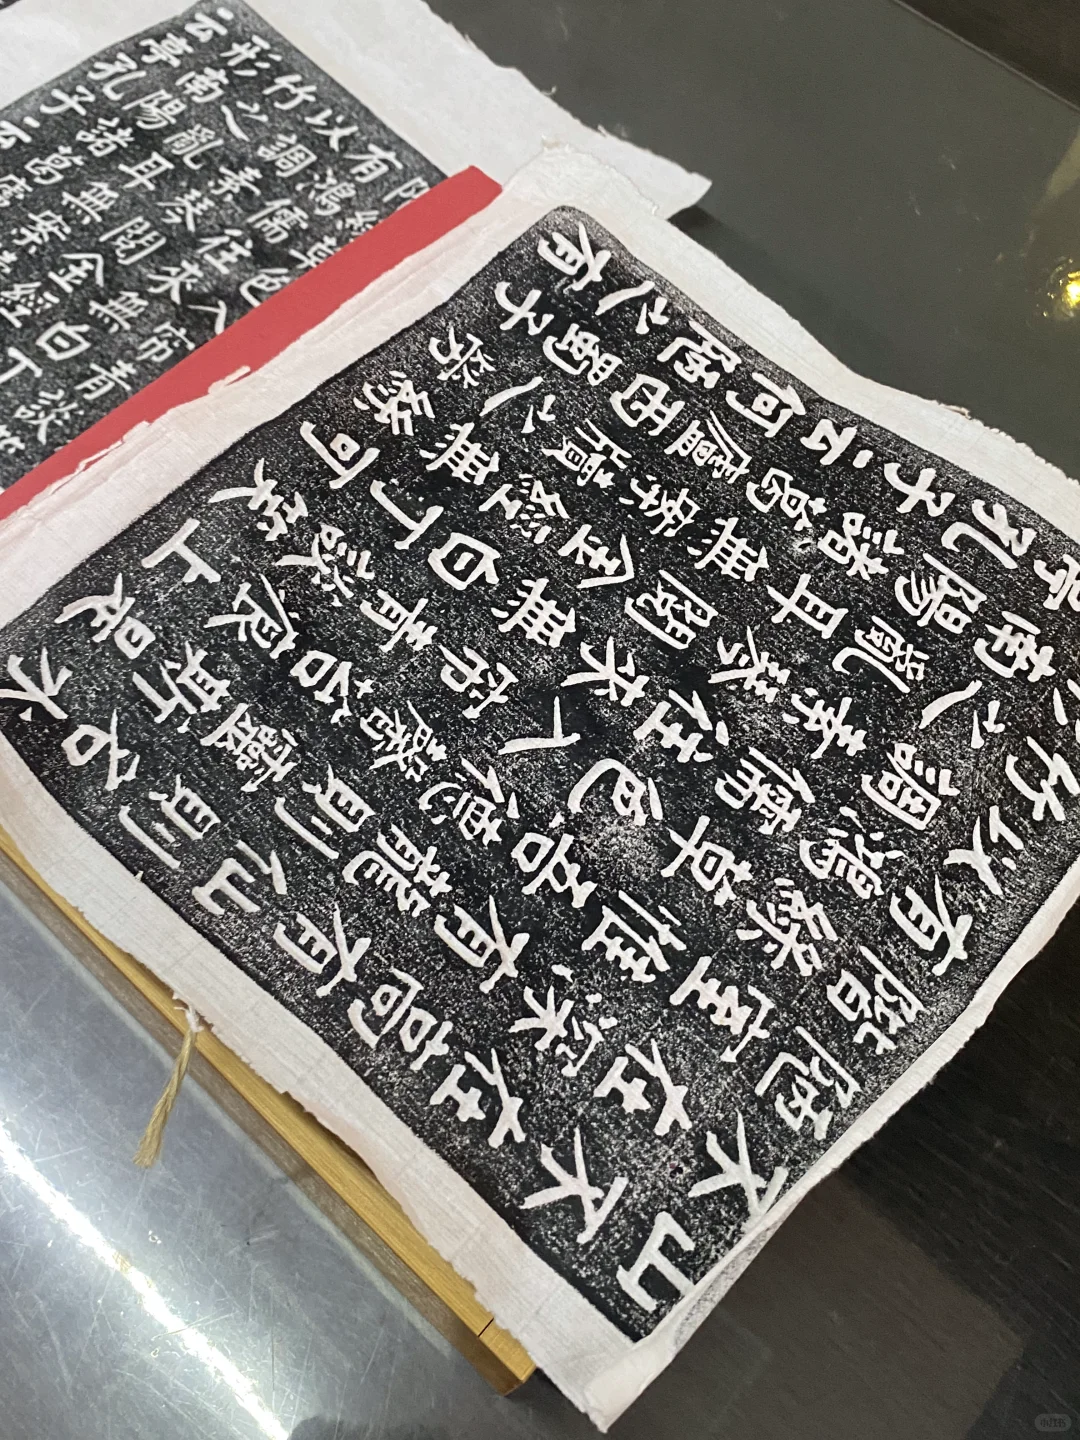 山不在高有仙則名水
不在深有龍則靈斯是
陋室惟吾德馨苔痕上
階綠草色入帘青談笑
有鴻儒往來無白丁可
以調素琴閱金經無絲
竹之亂耳無案牘之勞
形南陽諸葛廬西蜀子
亭孔子云何陋之有
草色入帘青談
有鴻儒往來無白丁
以調素琴閱金經
竹之亂耳無案
形南陽諸葛廬
云亭孔子云